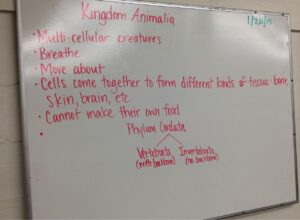 Kingdom Animalia
1/20/15
• Multi-cellular creatures
• Breathe
• Move about
• Cells come together to form different kinds of tissue: bone,
skin, brain, etc.
• Cannot make their own food
•
Phylum Cordata
Vertebrata Invertebrata
(with backbone) (no backbone)